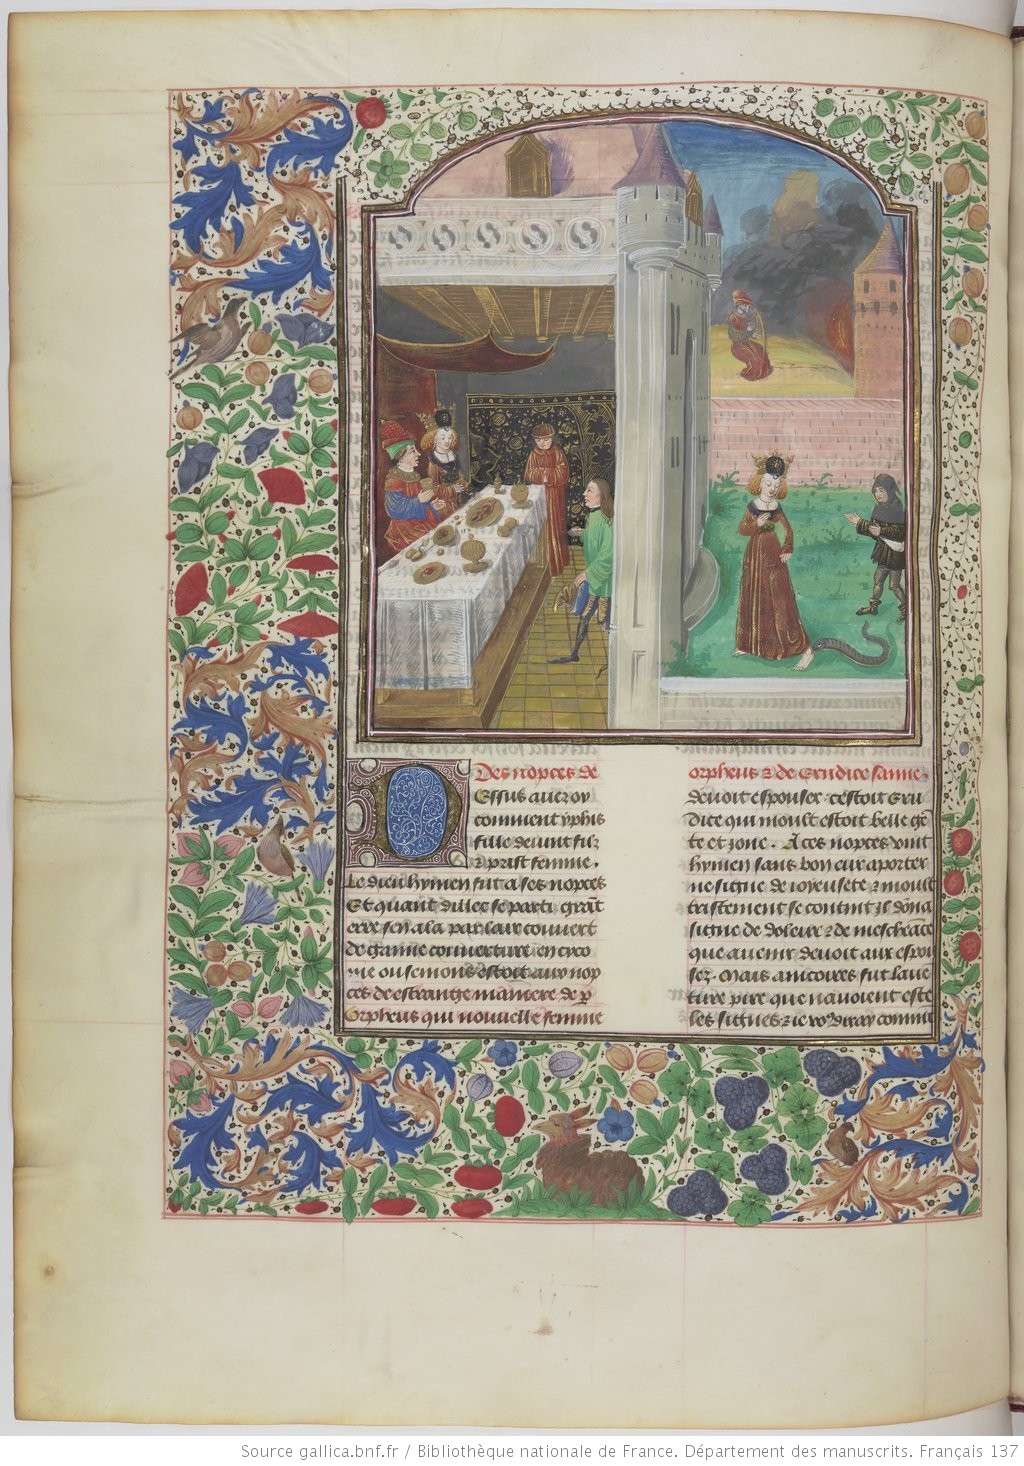 Des nopces de
Dessus avez oy
comment yphis
fille devint filz
& prist femme.
Le dieu hymen fut a ses nopces
Et quant dillec se parti grāt
erre sen ala par lair couvert
de iaune couverture en cyco
nie ou semons estoit aux nop
ces de estrange maniere de p
Orpheus qui nouvelle femme
orpheus & de Erudice sa fame,
devoit espouser. cestoit Eru
dice qui moult estoit belle gē
te et ione. A ces nopces vint
hymen sans bon eur aporter
ne signe de ioyeusete & moult
tristement se contint & il dōna
signe de doleur & de mescheāce
que avenir devoit aux espou
sez. Mais aincoires fut lave
ture pire que navoient este
les signes & ie voꝰ diray commēt
Source gallica.bnf.fr / Bibliothèque nationale de France. Département des manuscrits. Français 137